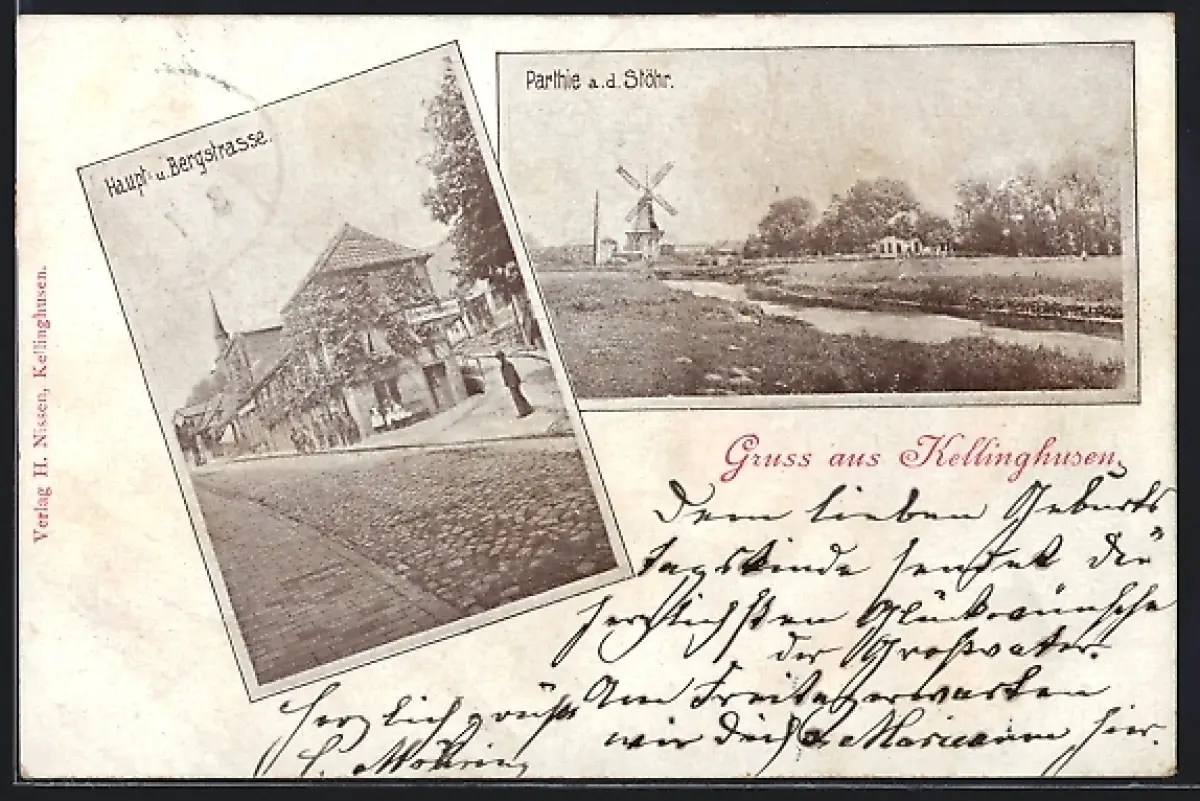 Haupt- u. Bergstrasse.
Parthie a. d. Stöhr.
Verlag H. Nissen, Kellinghusen.
Gruss aus Kellinghusen.
Dem lieben Geburts
tagskinde sendet die
herzlichsten Glückwünsche
der Großvater.
Am Freitag erwarten
wir Dich Mariann hier.
Herzlich grüßt
Möhring